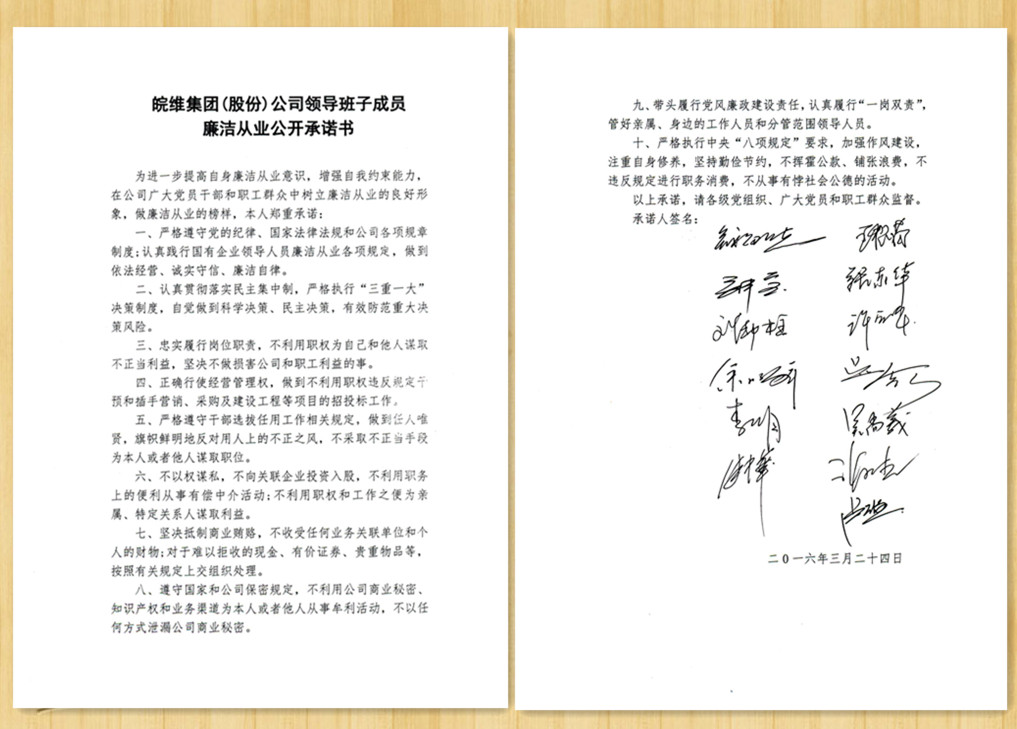 皖维集团(股份)公司领导班子成员
廉洁从业公开承诺书
为进一步提高自身廉洁从业意识，增强自我约束能力，
在公司广大党员干部和职工群众中树立廉洁从业的良好形
象，做廉洁从业的榜样，本人郑重承诺：
一、严格遵守党的纪律、国家法律法规和公司各项规章
制度；认真践行国有企业领导人员廉洁从业各项规定，做到
依法经营、诚实守信、廉洁自律。
二、认真贯彻落实民主集中制，严格执行“三重一大”
决策制度，自觉做到科学决策、民主决策，有效防范重大决
策风险。
三、忠实履行岗位职责，不利用职权为自己和他人谋取
不正当利益，坚决不做损害公司和职工利益的事。
四、正确行使经营管理权，做到不利用职权违反规定干
预和插手营销、采购及建设工程等项目的招投标工作。
五、严格遵守干部选拔任用工作相关规定，做到任人唯
贤，旗帜鲜明地反对用人上的不正之风，不采取不正当手段
为本人或者他人谋取职位。
六、不以权谋私，不向关联企业投资入股，不利用职务
上的便利从事有偿中介活动；不利用职权和工作之便为亲
属、特定关系人谋取利益。
七、坚决抵制商业贿赂，不收受任何业务关联单位和个
人的财物；对于难以拒收的现金、有价证券、贵重物品等，
按照有关规定上交组织处理。
八、遵守国家和公司保密规定，不利用公司商业秘密、
知识产权和业务渠道为本人或者他人从事牟利活动，不以任
何方式泄漏公司商业秘密。
九、带头履行党风廉政建设责任，认真履行“一岗双责”，
管好亲属、身边的工作人员和分管范围领导人员。
十、严格执行中央“八项规定”要求，加强作风建设，
注重自身修养，坚持勤俭节约，不挥霍公款、铺张浪费，不
违反规定进行职务消费，不从事有悖社会公德的活动。
以上承诺，请各级党组织、广大党员和职工群众监督。
承诺人签名：
张东华
李明
吴尚义
二0一六年三月二十四日